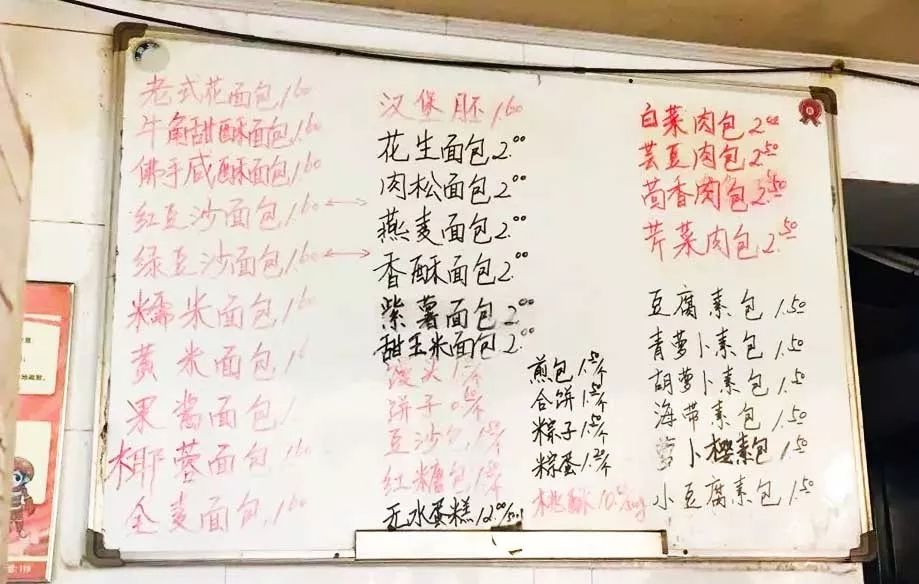 老式花面包 1.60
牛角甜酥面包 1.60
佛手咸酥面包 1.60
红豆沙面包 1.60
绿豆沙面包 1.60
糯米面包 1.60
黄米面包 1.6
果酱面包 1
椰蓉面包 1.60
全麦面包 1.60
汉堡胚 1.60
花生面包 2.00
肉松面包 2.00
燕麦面包 2.00
香酥面包 2.00
紫薯面包 2.00
甜玉米面包 2.00
馒头
饼子
豆沙包
红糖包
无水蛋糕 12.00/500g
煎包 1.50/个
合饼 1.50/个
粽子 1.50/个
粽蛋
桃酥
白菜肉包 2.00
芸豆肉包 2.50
茴香肉包 2.50
芹菜肉包 2.50
豆腐素包 1.50
青萝卜素包 1.50
胡萝卜素包 1.50
海带素包 1.50
萝卜樱素包 1.50
小豆腐素包 1.50